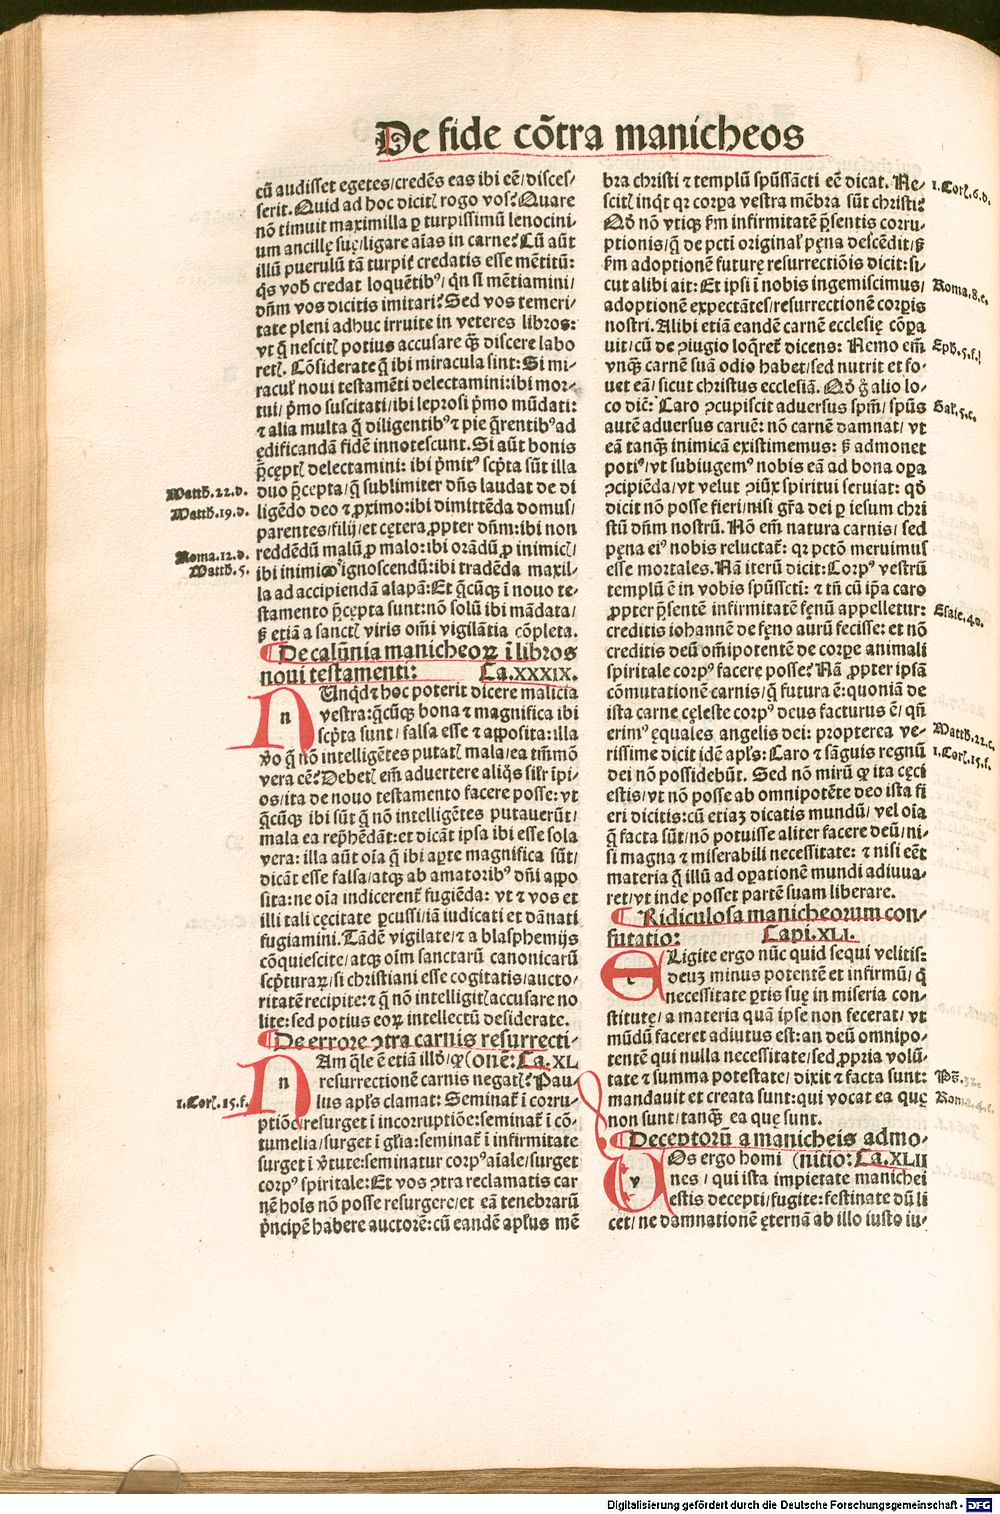 De fide cõtra manicheos
cũ audisset egetes/credẽs eas ibi eẽ/disces/
serit. Quid ad hoc dicitꝭ rogo vos? Quare
nõ timuit maximilla ꝑ turpissimũ lenocini/
um ancillę suę/ligare aĩas in carne? Cũ aũt
illũ puerulũ tã turpiť credatis esse mẽtitũ:
q̃s vob̃ credat loquẽtibꝰ/ qñ sĩ mẽtiamini/
dñm vos dicitis imitari? Sed vos temeri/
tate pleni adhuc irruite in veteres libros:
vt q̃ nescitꝭ potius accusare q̃ꝫ discere labo
retꝭ. Cõsiderate q̃ ibi miracula sint: Si mi/
raculꝭ noui testamẽti delectamini: ibi mor/
tui/ p̃mo suscitati/ ibi leprosi p̃mo mũdati:
⁊ alia multa q̃ diligentibꝰ ⁊ pie q̃rentibꝰ ad
ędificandã fidẽ innotescunt. Si aũt bonis
p̃ceptꝭ delectamini: ibi p̃mitꝰ scp̃ta sũt illa
duo p̃cepta/ q̃ sublimiter dñs laudat de di
ligẽdo deo ⁊ ꝓximo: ibi dimittẽda domus/
parentes/filij/et cętera ꝓpter dñm: ibi non
reddẽdũ malũ ꝓ malo: ibi orãdũ ꝓ inimicꝭ/
ibi inimico ignoscendũ: ibi tradẽda maxil/
la ad accipiendã alapã: Et q̃cũqꝫ ĩ nouo te/
stamento p̃cępta sunt: nõ solũ ibi mãdata/
sꝫ etiã a sanctꝭ viris om̃i vigilãtia cõpleta.
¶ De calũnia manicheoꝝ ĩ libros
noui testamenti: Ca.XXXIX.
n
NUnqd ⁊ hoc poterit dicere malicia
vestra: q̃cũqꝫ bona ⁊ magnifica ibi
scp̃ta sunt/ falsa esse ⁊ apposita: illa
ṽo q̃ nõ intelligẽtes putatꝭ mala/ea tm̃mõ
vera eẽ? Debetꝭ em̃ aduertere aliq̃s sil̃r ĩpi/
os/ita de nouo testamento facere posse: vt
q̃cũqꝫ ibi sũt q̃ nõ intelligẽtes putauerũt/
mala ea rep̃hẽdãt: et dicãt ipsa ibi esse sola
vera: illa aũt oĩa q̃ ibi aꝑte magnifica sũt/
dicãt esse falsa/ atqꝫ ab amatoribꝰ dñi appo
sita: ne oĩa indicerentꝭ fugiẽda: vt ⁊ vos et
illi tali cęcitate ꝑcussi/iã iudicati et dãnati
fugiamini. Tãdẽ vigilate/⁊ a blasphemijs
cõquiescite/ atqꝫ oĩm sanctarũ canonicarũ
scp̃turaꝝ/ si christiani esse cogitatis/ aucto/
ritatẽ recipite: ⁊ q̃ nõ intelligitꝭ accusare no
lite: sed potius eoꝝ intellectũ desiderate.
¶ De errore ꝯtra carnis resurrecti-
n
NAm q̃le ẽ etiã illd̃/ qꝙ (onẽ: Ca.XL
resurrectionẽ carnis negatꝭ? Pau/
lus apl̃s clamat: Seminat̃ ĩ corru/
ptiõe resurget ĩ incorruptiõe: seminat̃ ĩ cõ/
tumelia/ surget ĩ gl̃ia: seminat̃ ĩ infirmitate
surget ĩ ṽtute: seminatur corpꝰ aĩale/surget
corpꝰ spiritale: Et vos ꝯtra reclamatis car
nẽ hois nõ posse resurgere/ et eã tenebrarũ
p̃ncipẽ habere auctorẽ: cũ eandẽ apl̃us mẽ
Matth. 22. d.
Matth. 19. d.
Roma. 12. d.
Matth. 5.
1. Corꝭ. 15. f.
bra christi ⁊ templũ spũssãcti eẽ dicat. Ne/
scitꝭ inqt̃ qꝛ corpa vestra mẽbra sũt christi?
Qd̃ nõ vtiqꝫ ẜm infirmitatẽ p̃sentis corru/
ptionis/ q̃ de pctĩ originalꝭ pęna descẽdit/ sꝫ
ẜm adoptionẽ futurę resurrectiõis dicit: si/
cut alibi ait: Et ipsi ĩ nobis ingemiscimus/
adoptionẽ expectãtes/resurrectionẽ corꝑis
nostri. Alibi etiã eandẽ carnẽ ecclesię cõpa
uit/ cũ de ꝯiugio loq̃ret̃ dicens: Nemo em̃
vnqꝫ carnẽ suã odio habet/sed nutrit et fo-
uet eã/ sicut christus ecclesiã. Qd̃ g̃ alio lo/
co dic̃: Caro ꝯcupiscit aduersus spm̃/ spũs
autẽ aduersus carnẽ: nõ carnẽ damnat/ vt
eã tanqꝫ inimicã existimemus: sꝫ admonet
potiꝰ/ vt subiugemꝰ nobis eã ad bona oꝑa
ꝯcipiẽda/ vt velut ꝯiũx spiritui seruiat: qd̃
dicit nõ posse fieri/ nisi gr̃a dei ꝑ iesum chri
stũ dñm nostrũ. Nõ em̃ natura carnis/ sed
pęna eiꝰ nobis reluctat̃: qꝛ pctõ meruimus
esse mortales. Nã iterũ dicit: Corpꝰ vestrũ
templũ ẽ in vobis spũsscti: ⁊ tñ cũ ip̃a caro
ꝓpter p̃sentẽ infirmitatẽ fęnũ appelletur:
creditis iohannẽ de fęno aurũ fecisse: et nõ
creditis deũ om̃ipotentẽ de corꝑe animali
spiritale corpꝰ facere posse? Nã ꝓpter ipsã
cõmutationẽ carnis/ q̃ futura ẽ: quoniã de
ista carne cęleste corpꝰ deus facturus ẽ/ qñ
erimꝰ ęquales angelis dei: propterea ve/
rissime dicit idẽ apl̃s: Caro ⁊ sãguis regnũ
dei nõ possidebũt. Sed nõ mirũ qꝙ ita cęci
estis/ vt nõ posse ab omnipotẽte deo ista fi
eri dicitis: cũ etiaꝫ dicatis mundũ/ vel oĩa
q̃ facta sũt/ nõ potuisse aliter facere deũ/ ni/
si magna ⁊ miserabili necessitate: ⁊ nisi eẽt
materia q̃ illũ ad oꝑationẽ mundi adiuua/
ret/ vt inde posset partẽ suam liberare.
¶ Ridiculosa manicheorum con/
futatio: Capi.XLI.
e
ELigite ergo nũc quid sequi velitis:
deuꝫ minus potentẽ et infirmũ/ q̃
necessitate ꝑtis suę in miseria con/
stitutę/ a materia quã ipse non fecerat/ vt
mũdũ faceret adiutus est: an deũ omnipo/
tentẽ qui nulla necessitate/ sed ꝓpria volũ/
tate ⁊ summa potestate/ dixit ⁊ facta sunt:
mandauit et creata sunt: qui vocat ea quę
non sunt/ tanqꝫ ea quę sunt.
¶ Deceptorũ a manicheis admo/
v
VOs ergo homi (nitio: Ca.XLII
nes/ qui ista impietate manichei
estis decepti/fugite: festinate dũ li
cet/ ne damnationẽ ęternã ab illo iusto iu/
1. Corꝭ. 6. d.
Roma. 8. e.
Eph. 5. f.
Gal. 5. c.
Esaie. 40.
Matth. 22. c.
1. Corꝭ. 15. f.
Ps̃. 32.
Roma. 4. c.
Digitalisierung gefördert durch die Deutsche Forschungsgemeinschaft - DFG